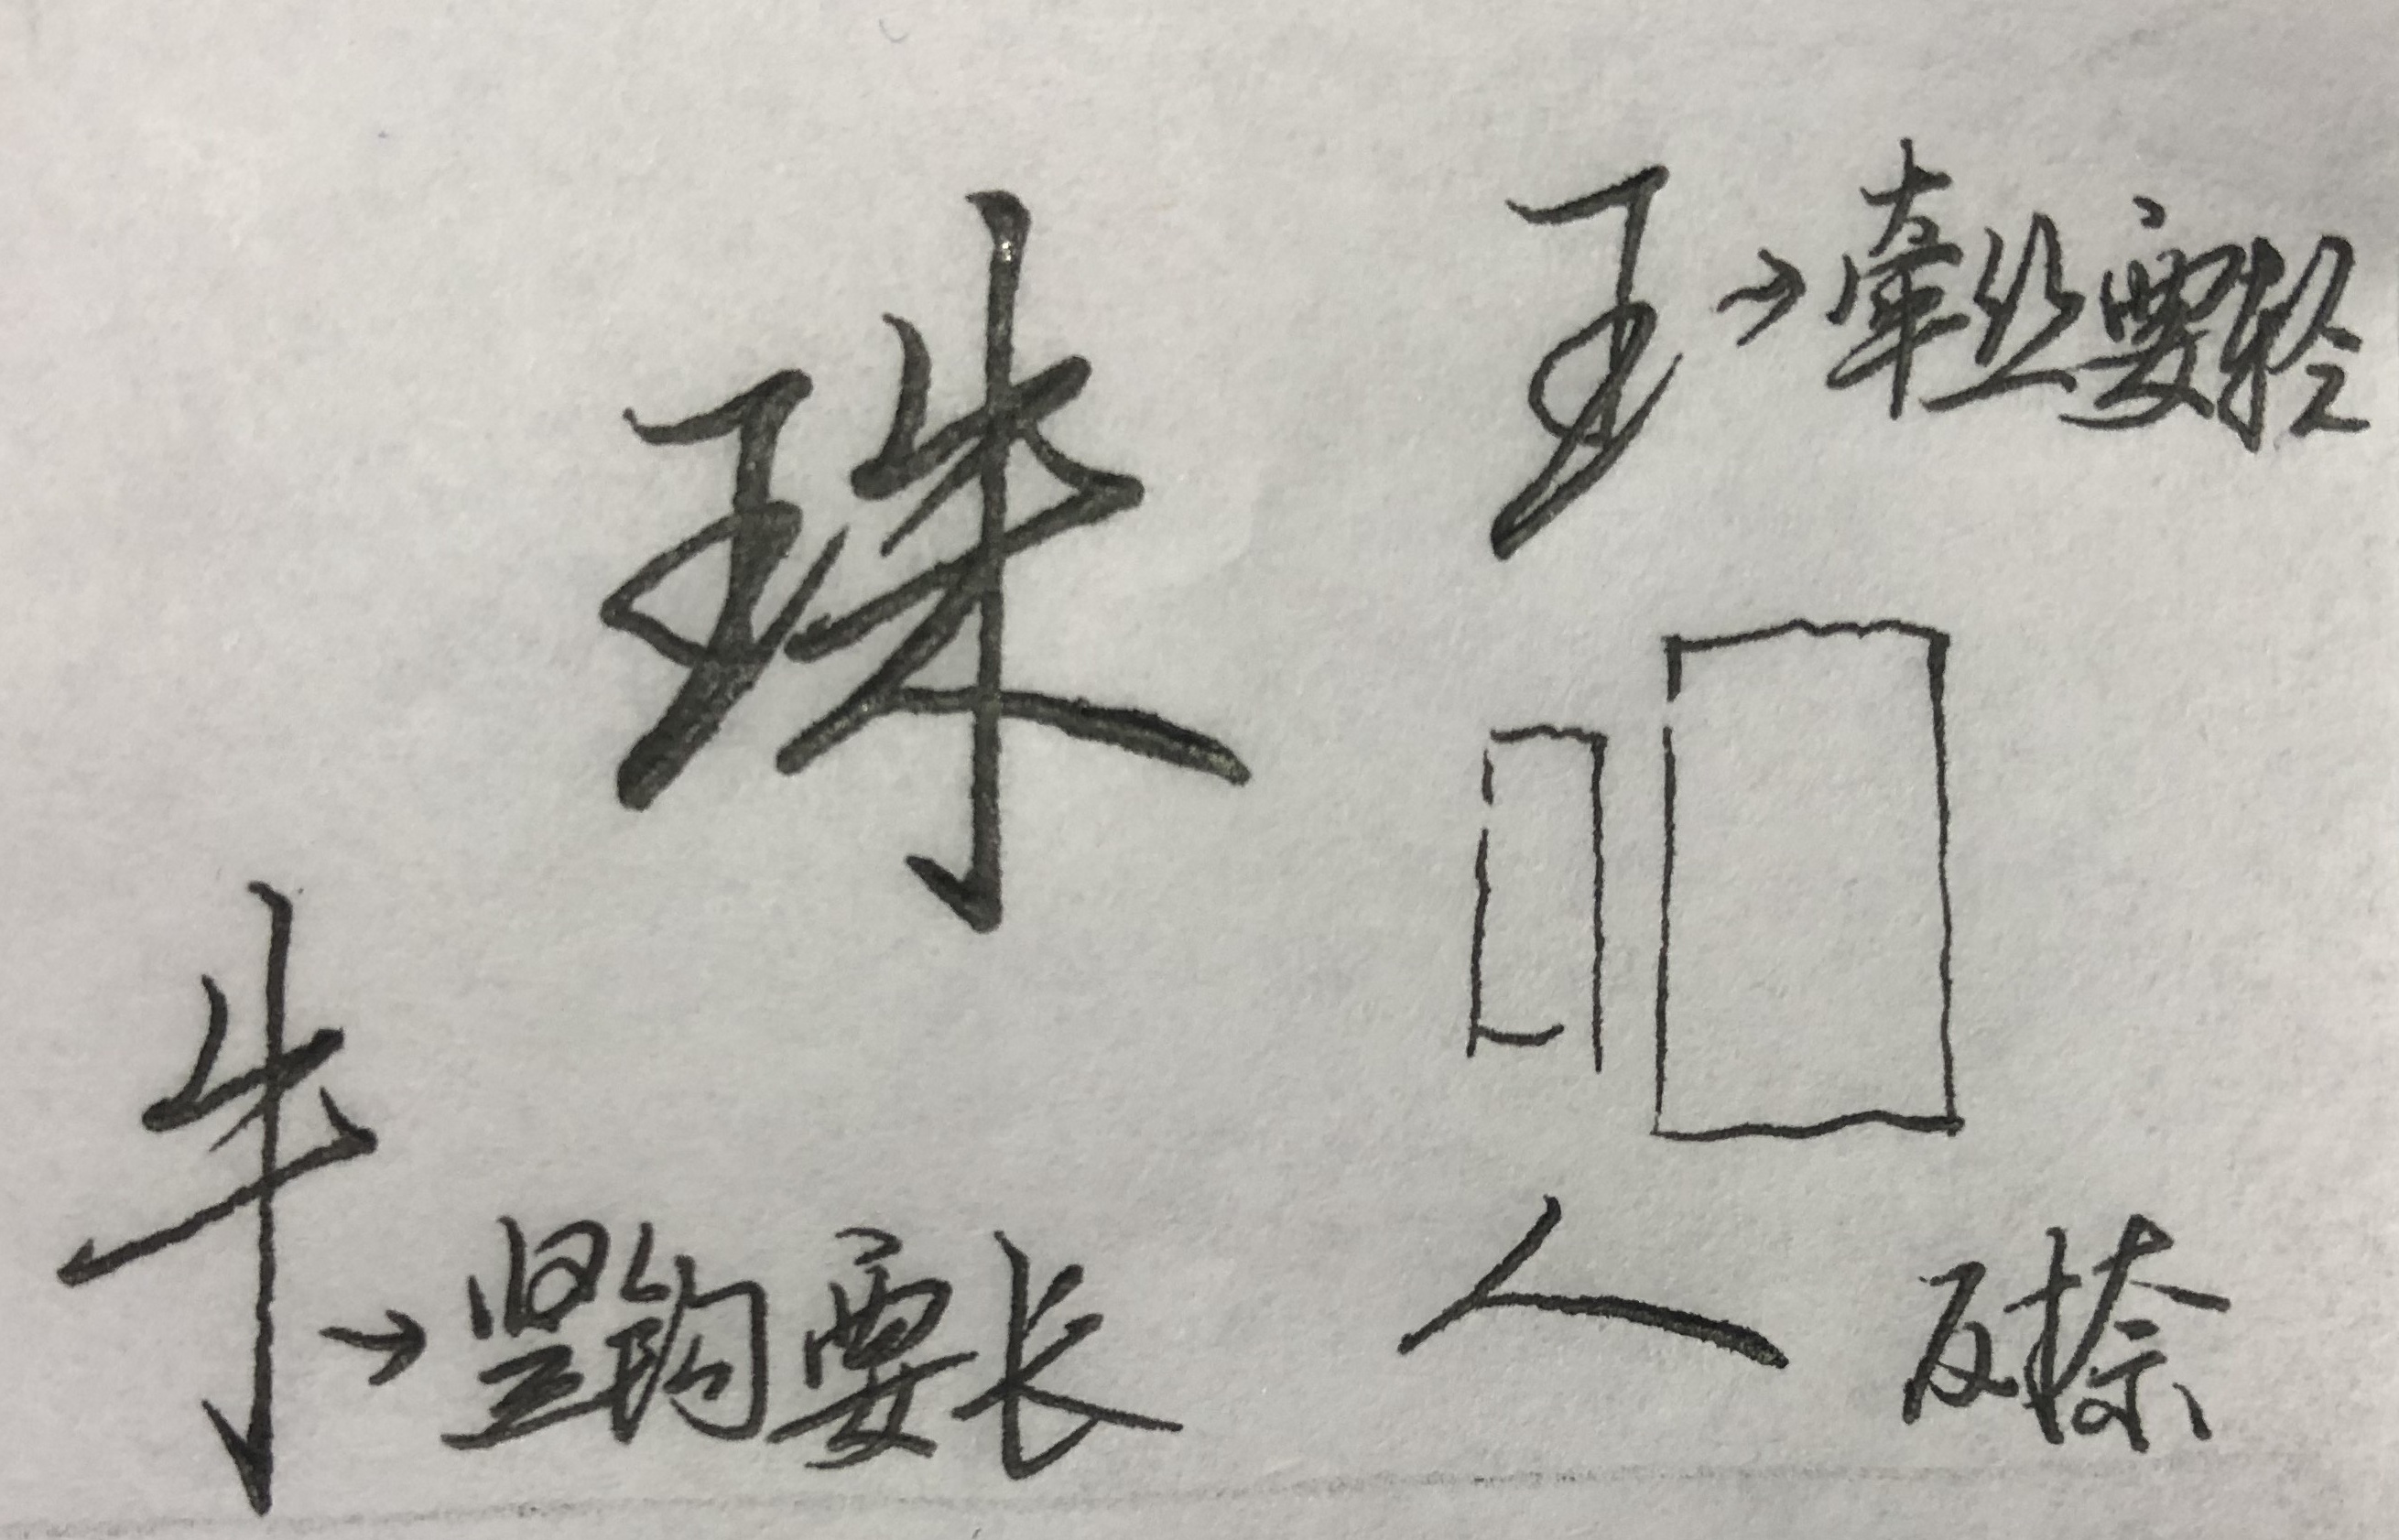 珠
王→牵丝要轻
牛→竖钩要长
人 反捺